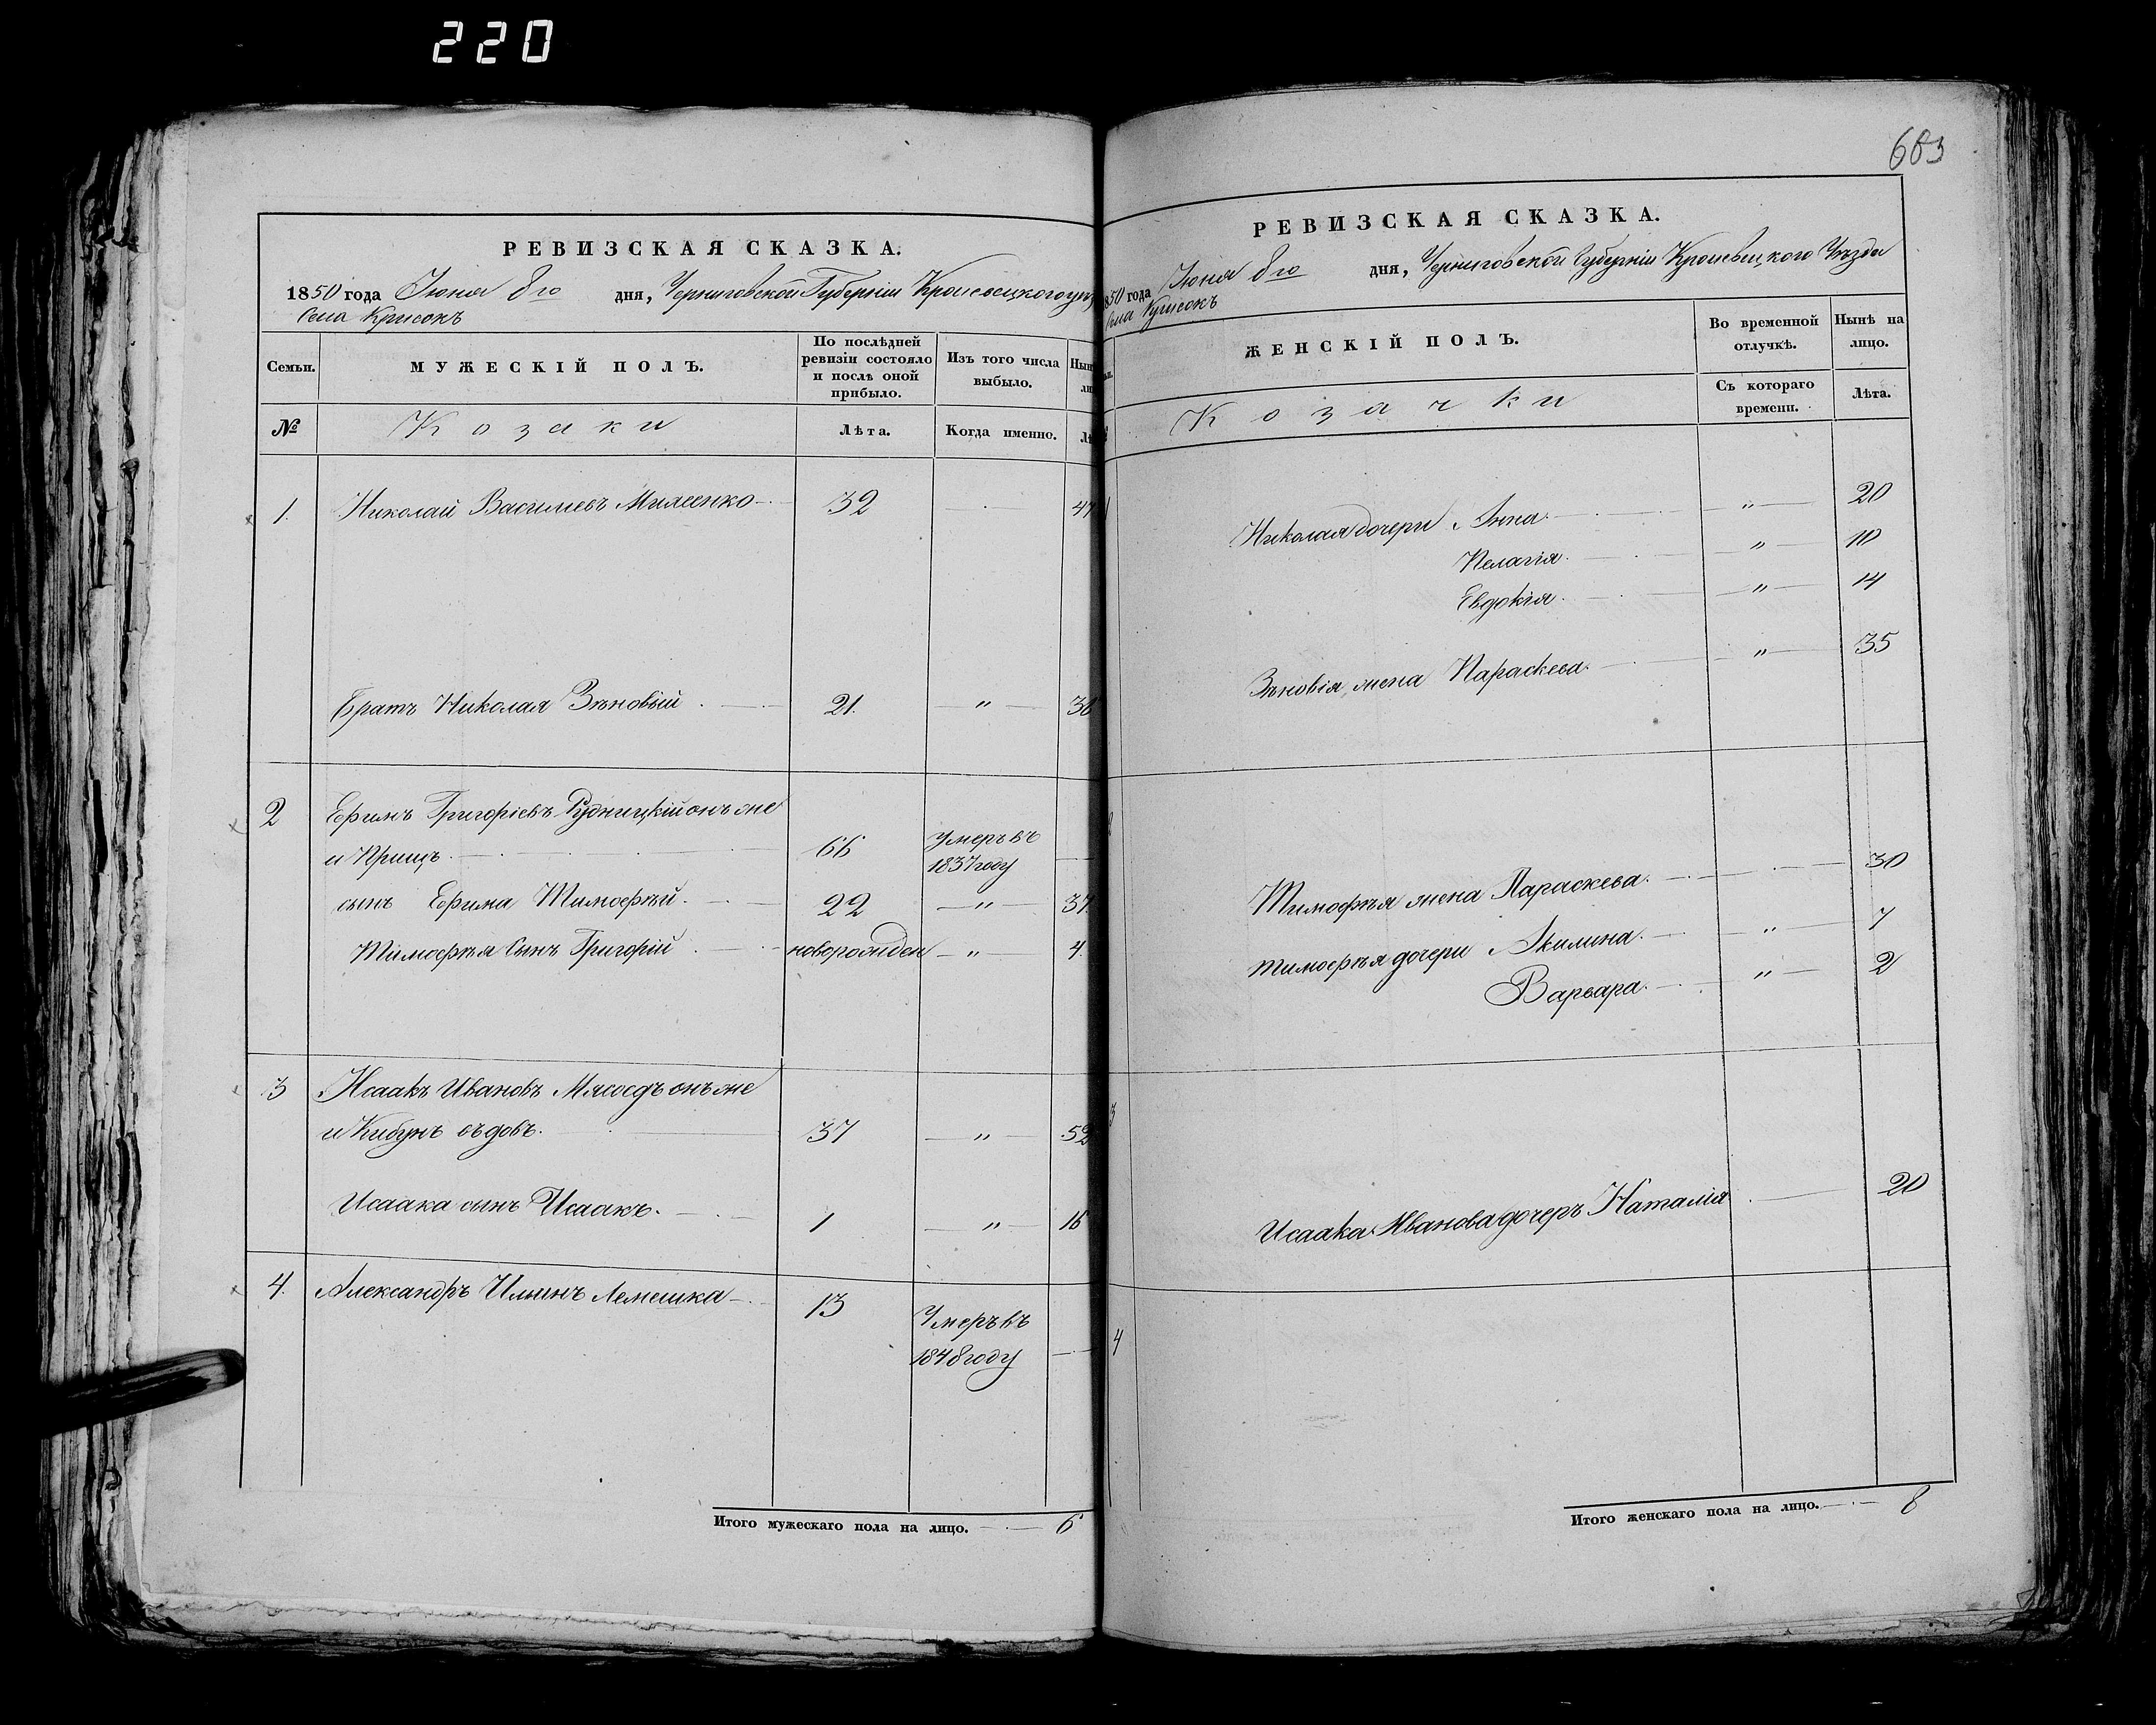 220
РЕВИЗСКАЯ СКАЗКА.
1850 года Июня 8го дня, Черниговской Губерніи Кролевецкого
Села
Семьи.
МУЖЕСКІЙ ПОЛЪ.
По послѣдней ревизіи состояло и послѣ оной прибыло.
Изъ того числа выбыло.
№
Козаки
Лѣта.
Когда именно.
1. Николай Васильевъ 32 47
Братъ Николая Зѣновій 21. „
2 Ефимъ Григоріевъ Рудницкій онъ же
и Прищъ 66 Умеръ въ 1837 году
сынъ Ефима Тимофѣй. 22 „ 37
Тимофѣя Сынъ Григорій новорожден „ 4.
3 Исаакъ Ивановъ Мясоедъ онъ же
и Кибунъ вдовъ. 37 „ 52
Исаака сынъ Исаакъ. 1 „ 16
4. Александръ Ильинъ Лемешка 13 Умеръ въ
1848 году
Итого мужескаго пола на лицо. 6
603
РЕВИЗСКАЯ СКАЗКА.
1850 года Июня 8го дня, Черниговской Губерніи Кролевецкого Уѣзда
Села
ЖЕНСКІЙ ПОЛЪ.
Во временной отлучкѣ.
Нынѣ на лицо.
Козачки
Съ котораго времени.
Лѣта.
1
Николая дочери Анна. „ 20
Пелагія. „ 10
Евдокія. „ 14
Зѣновія жена Параскева. „ 35
2
Тимофѣя жена Параскева. 30
Тимофѣя дочери Акилина. „ 7
Варвара. „ 2
3
Исаака Иванова дочеръ Наталія 20
4
Итого женскаго пола на лицо. 8